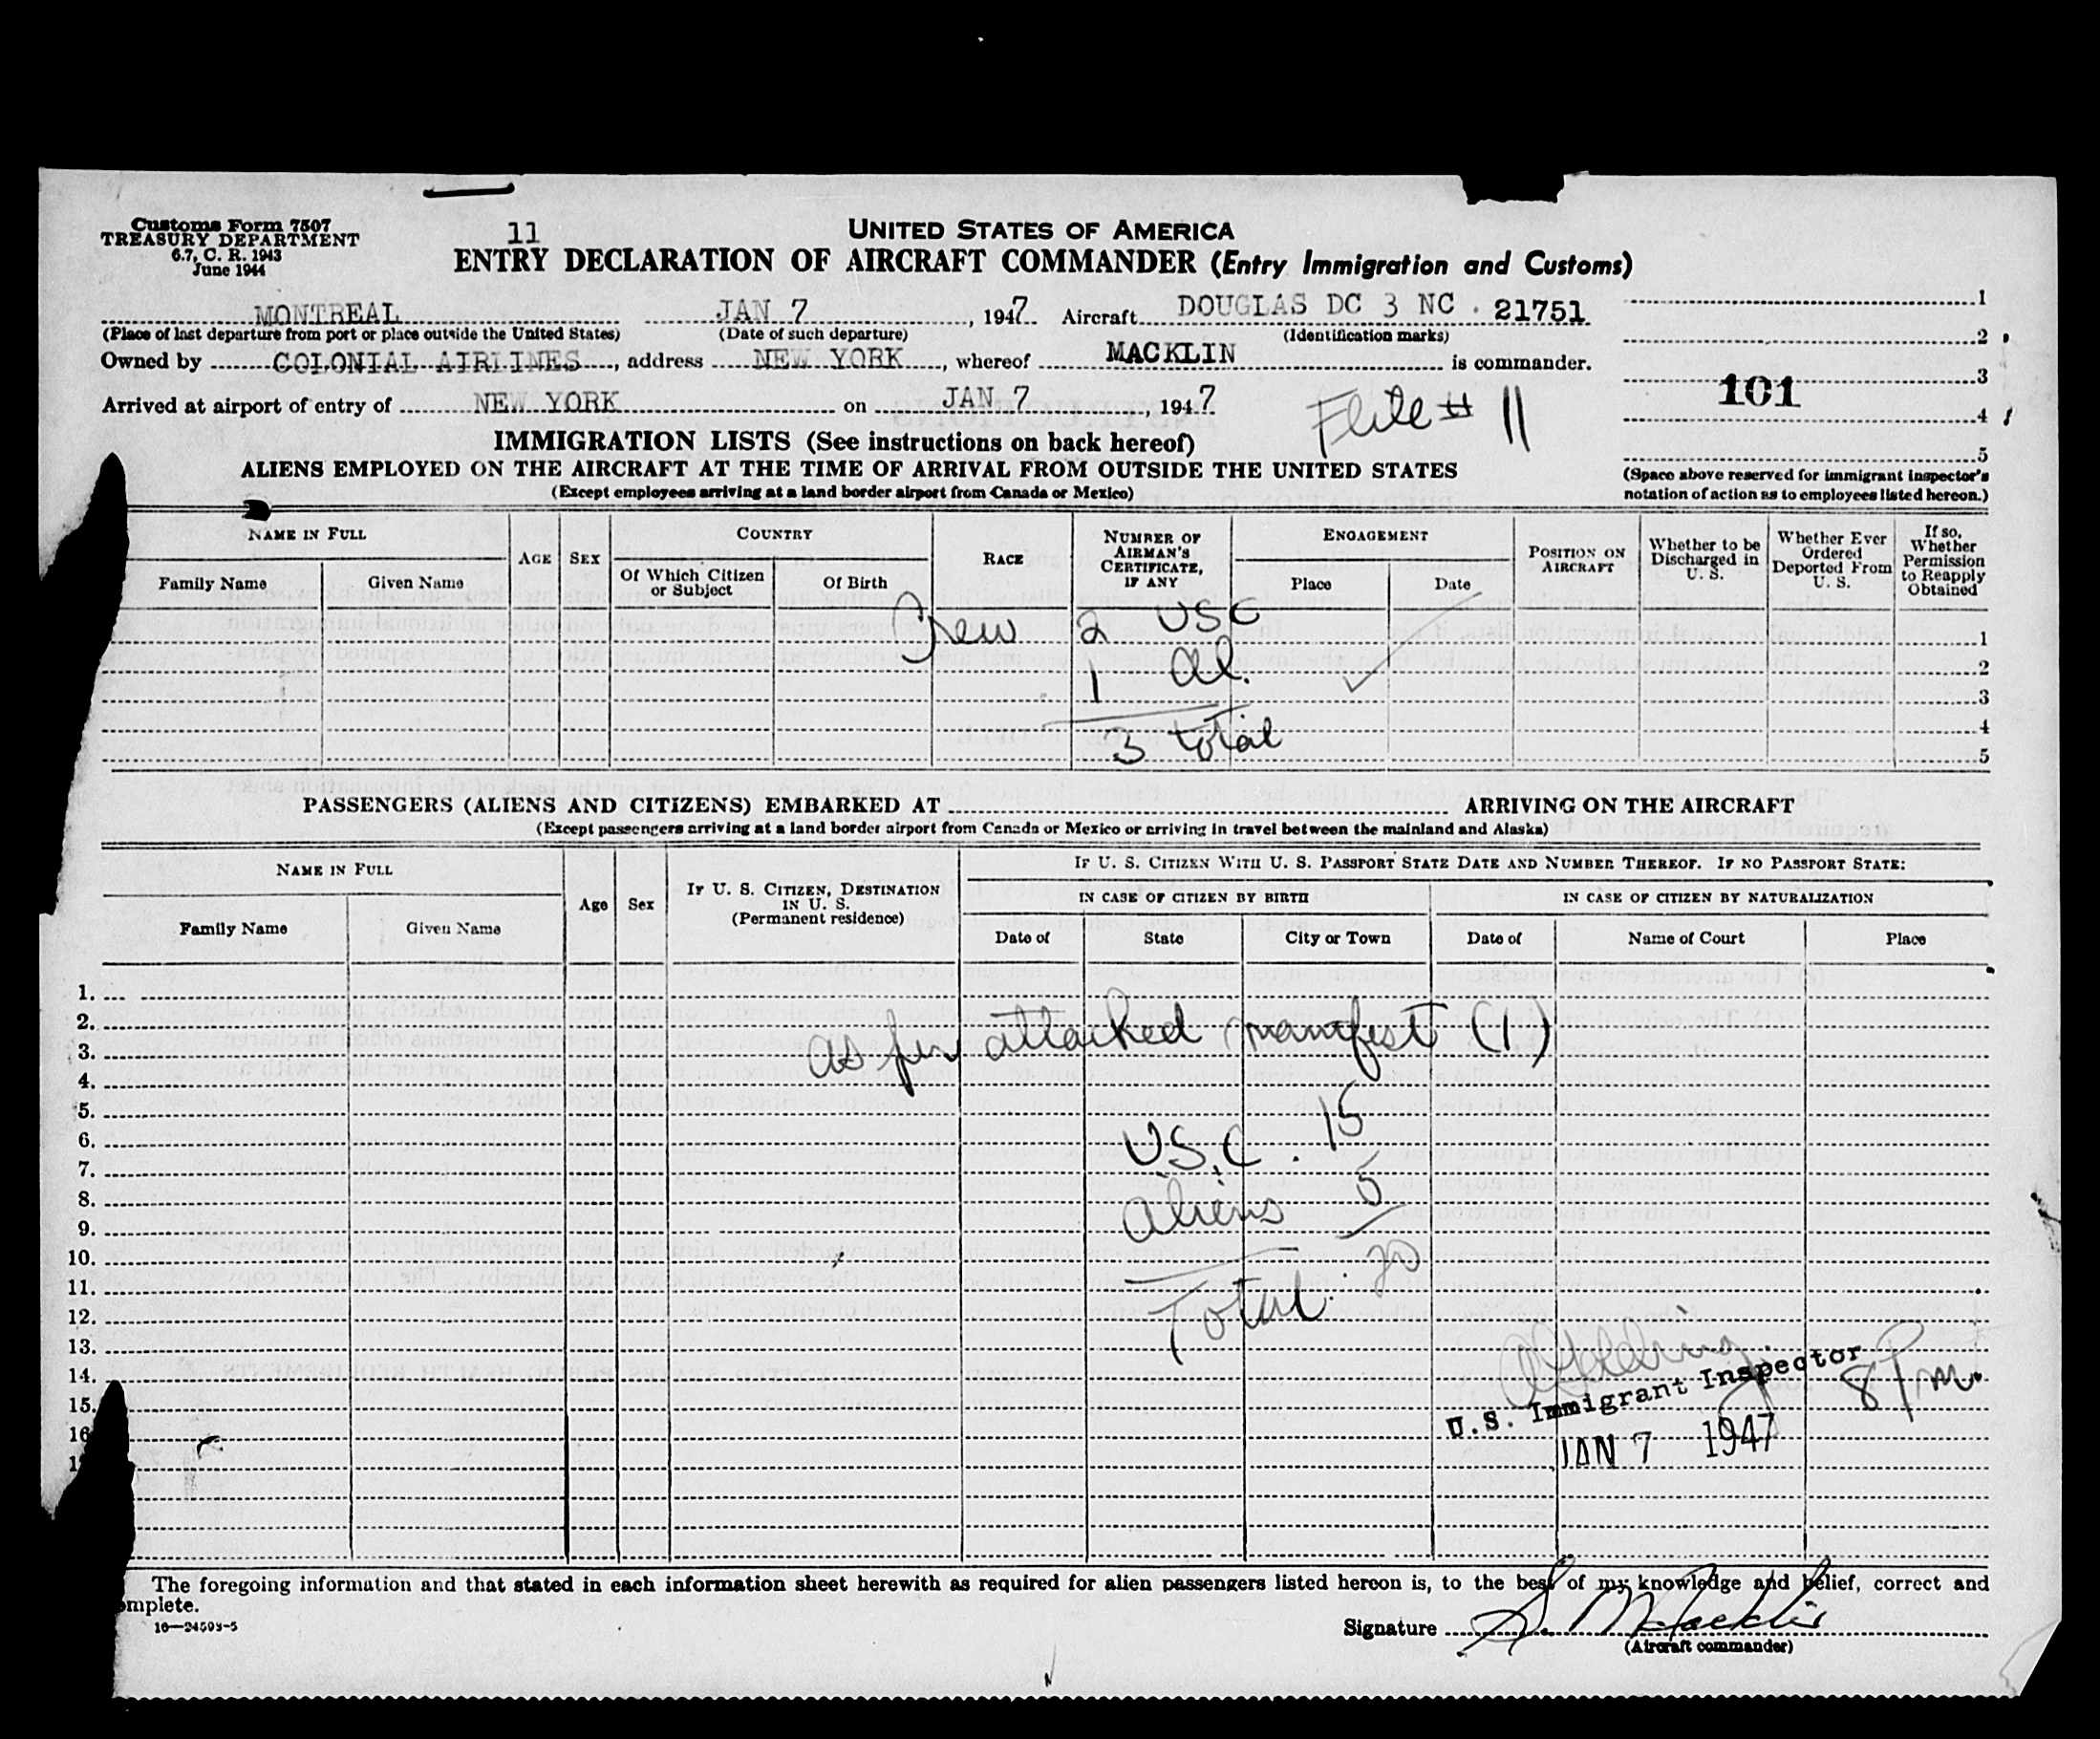 Customs Form 7507
TREASURY DEPARTMENT
6.7, C. R. 1943
June 1944
11
UNITED STATES OF AMERICA
ENTRY DECLARATION OF AIRCRAFT COMMANDER (Entry Immigration and Customs)
MONTREAL JAN 7, 1947 Aircraft DOUGLAS DC 3 NC . 21751
(Place of last departure from port or place outside the United States) (Date of such departure) (Identification marks)
Owned by COLONIAL AIRLINES, address NEW YORK, whereof MACKLIN is commander.
Arrived at airport of entry of NEW YORK on JAN 7, 1947
Flite # 11
1
2
3
101
4
5
(Space above reserved for immigrant inspector's
notation of action as to employees listed hereon.)
IMMIGRATION LISTS (See instructions on back hereof)
ALIENS EMPLOYED ON THE AIRCRAFT AT THE TIME OF ARRIVAL FROM OUTSIDE THE UNITED STATES
(Except employees arriving at a land border airport from Canada or Mexico)
NAME IN FULL
Family Name
Given Name
AGE
SEX
COUNTRY
Of Which Citizen
or Subject
Of Birth
RACE
NUMBER OF
AIRMAN'S
CERTIFICATE,
IF ANY
ENGAGEMENT
Place
Date
POSITION ON
AIRCRAFT
Whether to be
Discharged in
U. S.
Whether Ever
Ordered
Deported From
U. S.
If so,
Whether
Permission
to Reapply
Obtained
Crew 2 USC
1
1 al.
2
3
3 total
4
5
PASSENGERS (ALIENS AND CITIZENS) EMBARKED AT ARRIVING ON THE AIRCRAFT
(Except passengers arriving at a land border airport from Canada or Mexico or arriving in travel between the mainland and Alaska)
NAME IN FULL
Family Name
Given Name
Age
Sex
IF U. S. CITIZEN, DESTINATION
IN U. S.
(Permanent residence)
IF U. S. CITIZEN WITH U. S. PASSPORT STATE DATE AND NUMBER THEREOF. IF NO PASSPORT STATE:
IN CASE OF CITIZEN BY BIRTH
IN CASE OF CITIZEN BY NATURALIZATION
Date of
State
City or Town
Date of
Name of Court
Place
1.
2.
as per attached manifest (1)
3.
4.
5.
6.
U.S.C. 15
7.
8.
aliens 5
9.
10.
11.
Total. 20
12.
13.
14.
U.S. Immigrant Inspector 8 Pm.
15.
16
JAN 7 1947
The foregoing information and that stated in each information sheet herewith as required for alien passengers listed hereon is, to the best of my knowledge and belief, correct and
omplete.
16—24503-5
Signature S. Macklin
(Aircraft commander)